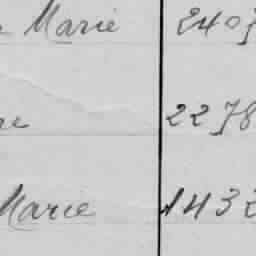 Marie 2403
re 2278
Marie 1432